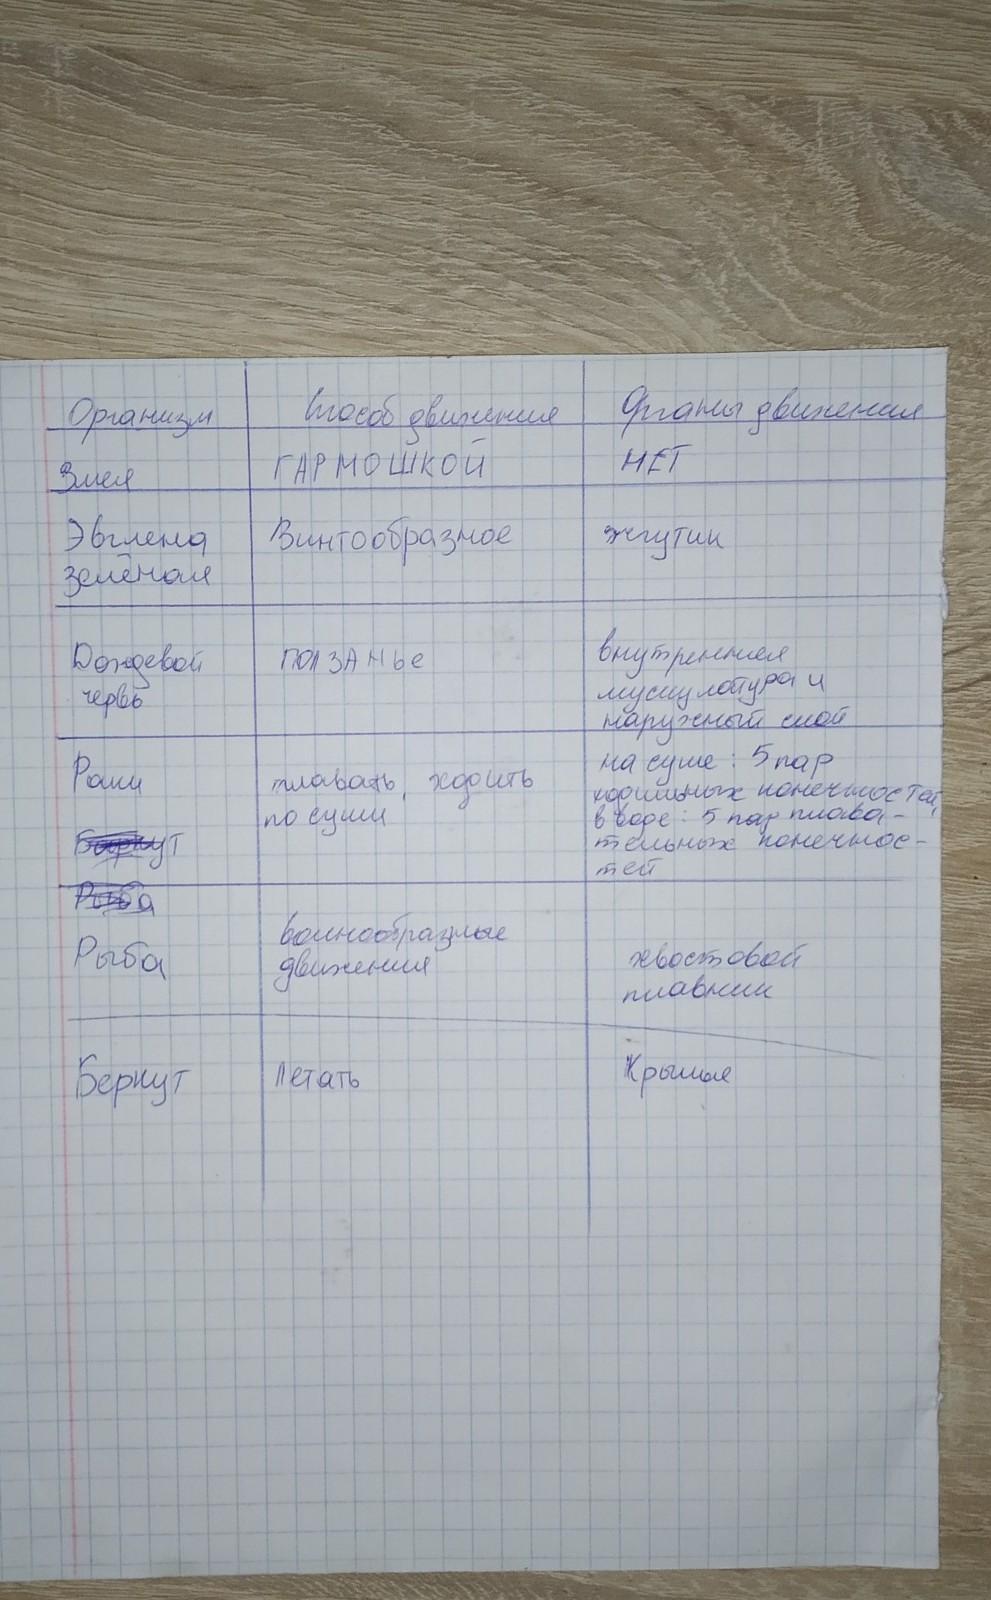 Организм Способ движения Органы движения
Змея ГАРМОШКОЙ НЕТ
Эвглена Винтообразное жгутик
зелёная
Дождевой ползанье внутренняя
червь мускулатура и
наружный слой
Раки плавать, ходить на суше: 5 пар
по суши ходильных конечностей,
в воде: 5 пар плава-
Беркут тельных конечнос-
тей
Рыба
Рыба волнообразные
движения хвостовой
плавник
Беркут летать Крылья